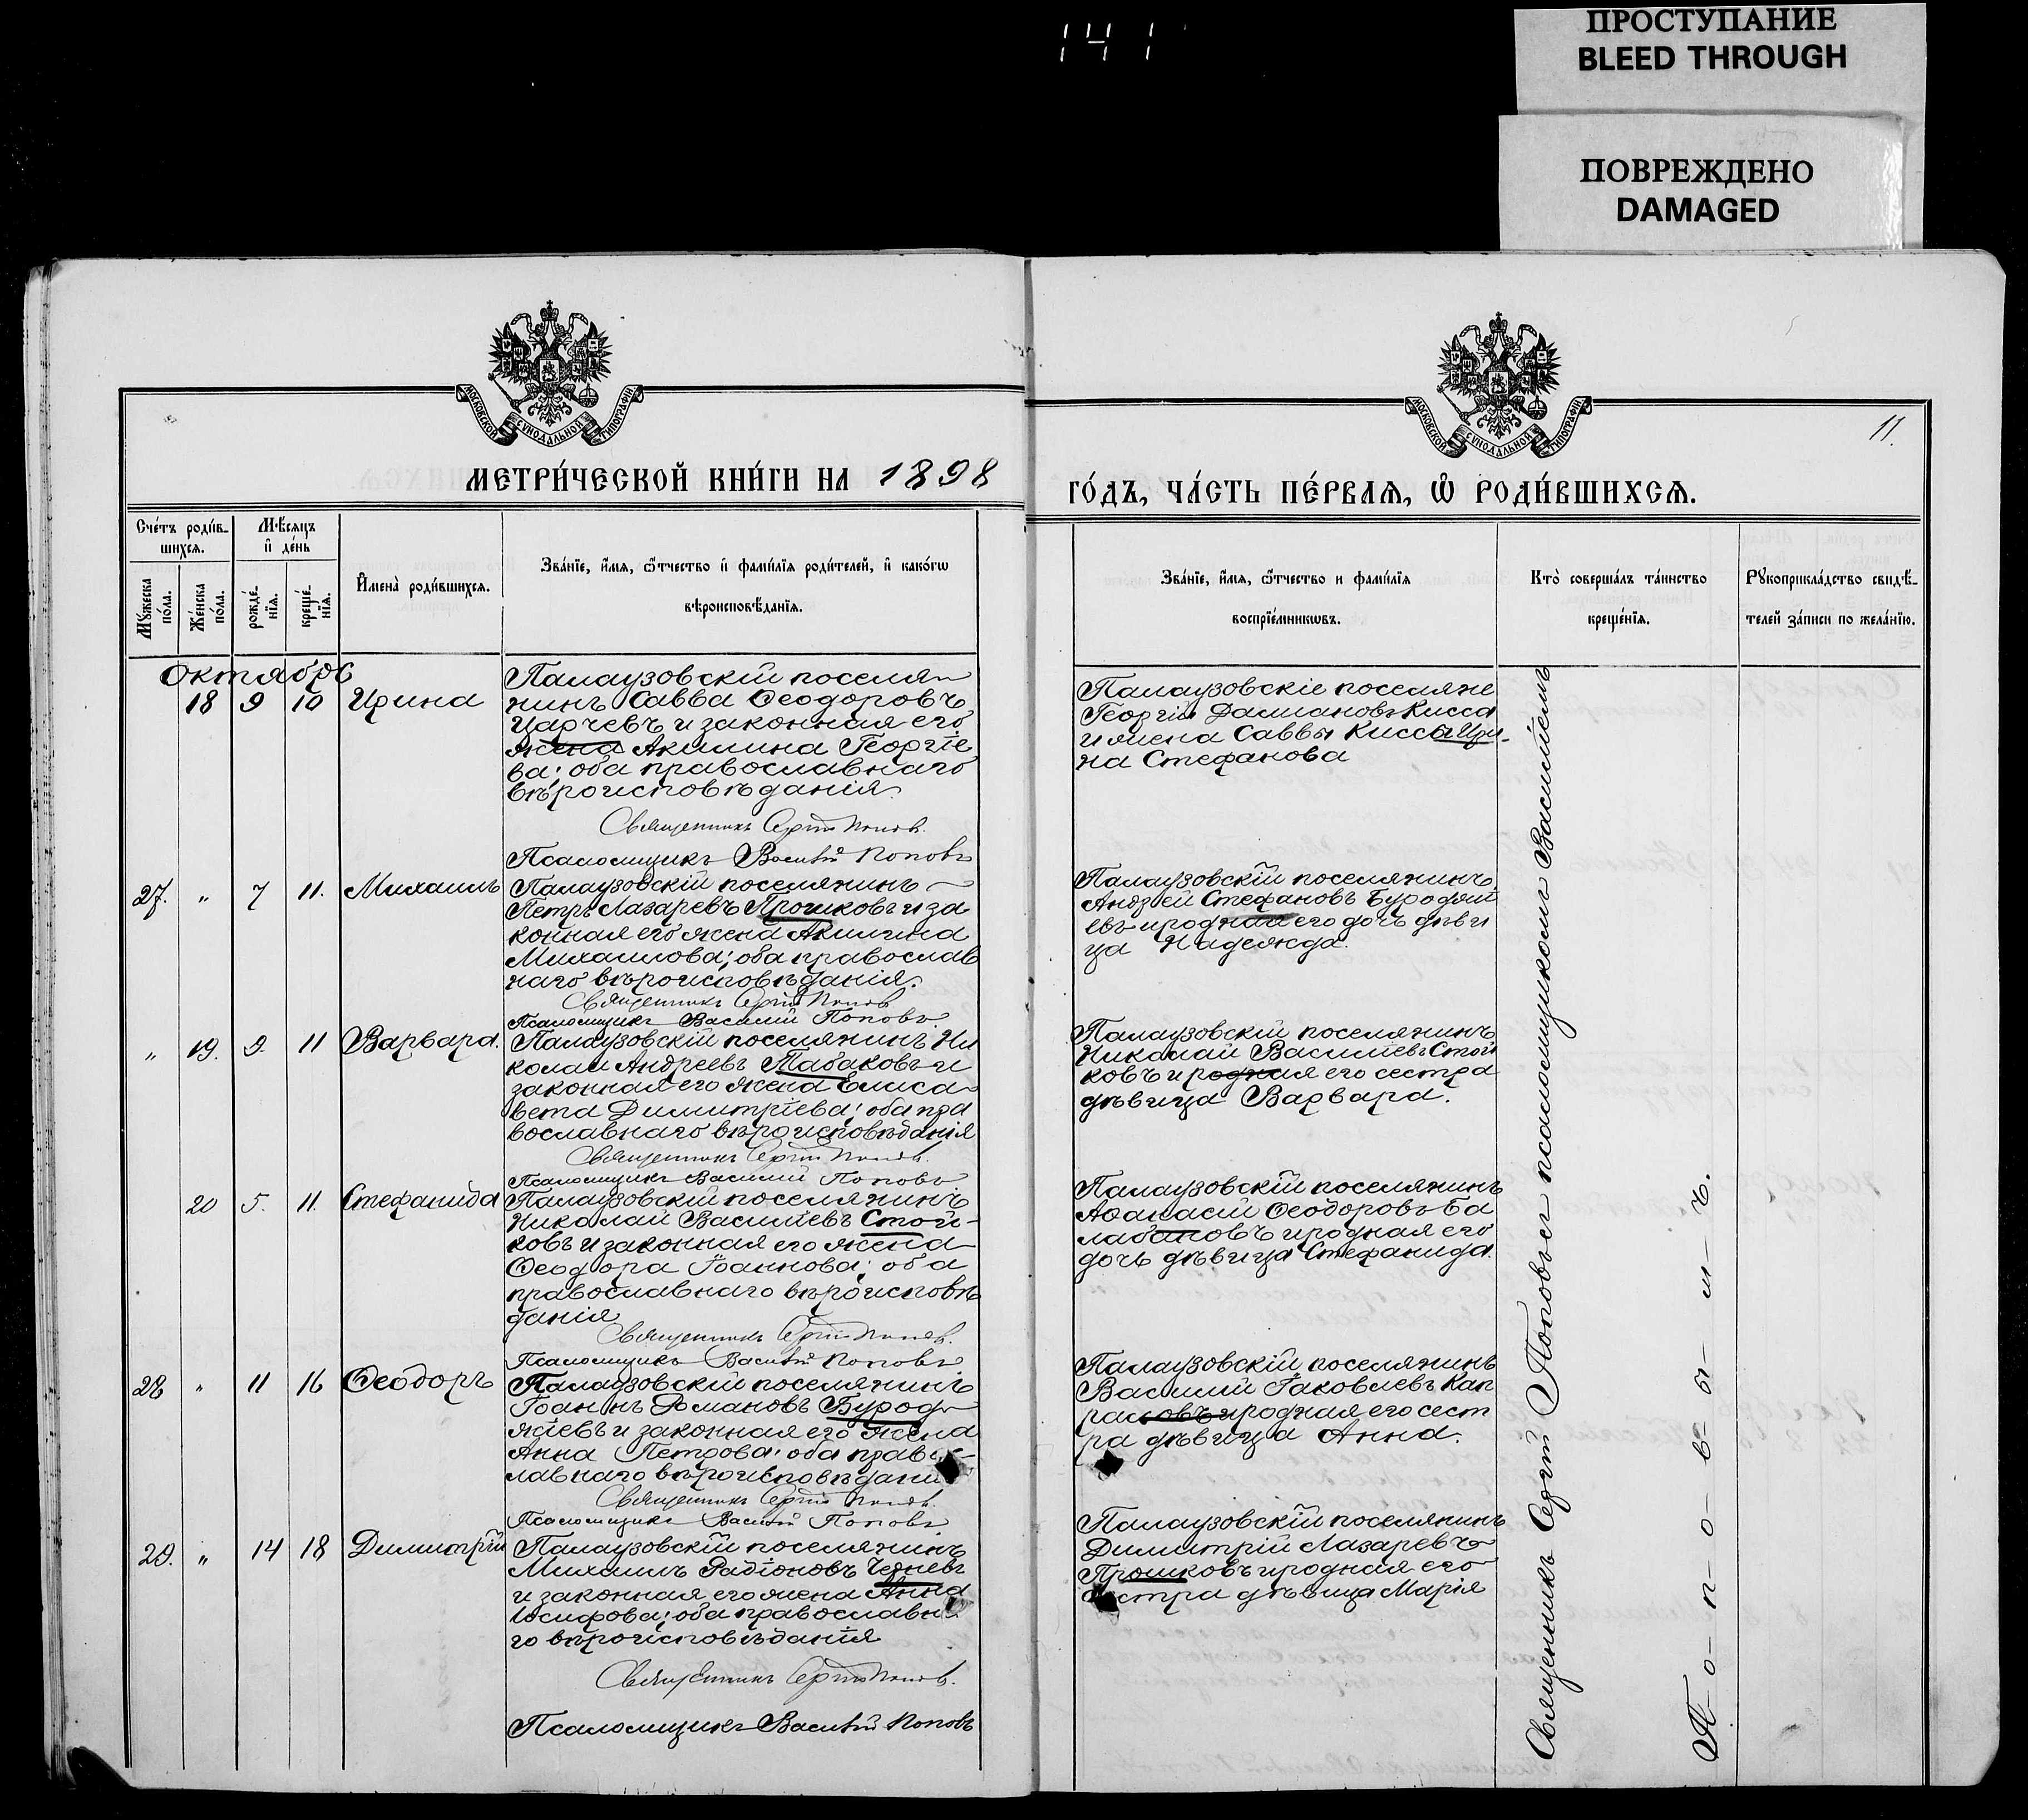 141
ПРОСТУПАНИЕ
BLEED THROUGH
ПОВРЕЖДЕНО
DAMAGED
МОСКОВСКОЙ СѴНОДАЛЬНОЙ ТИПОГРАФІИ
МОСКОВСКОЙ СѴНОДАЛЬНОЙ ТИПОГРАФІИ
11.
МЕТРИ́ЧЕСКОЙ КНИ́ГИ НА 1898
ГО́ДЪ, ЧА́СТЬ ПЕ́РВАѦ, Ѽ РОДИ́ВШИХСѦ.
Сче́тъ роди́в-
шихсѧ.
Мѣ́сѧцъ
и҆ де́нь
Мꙋ́жеска
по́ла.
Же́нска
по́ла.
рожде́-
нїѧ.
креще́-
нїѧ.
И҆мена̀ роди́вшихсѧ.
Зва́нїе, и҆́мѧ, ѻ҆́тчество и҆ фами́лїѧ роди́телей, и҆ како́гѡ
вѣроисповѣ́данїѧ.
Зва́нїе, и҆́мѧ, ѻ҆́тчество и фами́лїѧ
воспрїе́мникѡвъ.
Кто̀ соверша́лъ та́инство
креще́нїѧ.
Рꙋкоприкла́дство свидѣ́-
телей за́писи по жела́нїю.
Октябрь
18 9 10 Ирина
Палаузовскій поселя-
нинъ Савва Ѳеодоровъ
Царчевъ и законная его
жена Акилина Георгіе
ва; оба православнаго
вѣроисповѣданія.
Священникъ Сергій Поповъ.
Псаломщикъ Василій Поповъ
Палаузовскіе поселяне
Георгій Даміановъ Кисса
и жена Саввы Кисса Ири-
на Стефанова
27. " 7 11. Михаилъ
Палаузовскій поселянинъ
Петръ Лазаревъ Прошковъ и за
конная его жена Акилина
Михаилова; оба православ
наго вѣроисповѣданія.
Священникъ Сергій Поповъ
Псаломщикъ Василій Поповъ
Палаузовскій поселянинъ
Андрей Стефановъ Буроджи
евъ и родная его дочь дѣви
ца Надежда.
" 19. 9. 11 Варвара.
Палаузовскій поселянинъ Ни
колай Андреевъ Табаковъ и
законная его жена Елиса-
вета Димитріева; оба пра
вославнаго вѣроисповѣданія
Священникъ Сергій Поповъ.
Псаломщикъ Василій Поповъ
Палаузовскій поселянинъ
Николай Василіевъ Стой
ковъ и родная его сестра
дѣвица Варвара.
20 5. 11. Стефанида
Палаузовскій поселянинъ
Николай Василіевъ Стой-
ковъ и законная его жена
Ѳеодора Іоаннова; оба
православнаго вѣроисповѣ
данія
Священникъ Сергій Поповъ.
Псаломщикъ Василій Поповъ
Палаузовскій поселянинъ
Аѳанасій Ѳеодоровъ Ба
лабановъ и родная его
дочь дѣвица Стефанида.
28 " 11 16 Ѳеодоръ
Палаузовскій поселянинъ
Іоаннъ Романовъ Буродж
жіевъ и законная его жена
Анна Петрова; оба право-
славнаго вѣроисповѣдані
Священникъ Сергій Поповъ.
Псаломщикъ Василій Поповъ
Палаузовскій поселянинъ
Василій Іаковлевъ Кап
раловъ и родная его сест
ра дѣвица Анна.
29. " 14 18 Димитрій
Палаузовскій поселянинъ
Михаилъ Радіоновъ Черневъ
и законная его жена Анна
Іосифова; оба православна
го вѣроисповѣданія
Священникъ Сергій Поповъ.
Псаломщикъ Василій Поповъ
Палаузовскій поселянинъ
Димитрій Лазаревъ
Прошковъ и родная его
сестра дѣвица Марія
Священникъ Сергій Поповъ съ псаломщикомъ Василіемъ
П-о-п-о-в-ы-м-ъ.